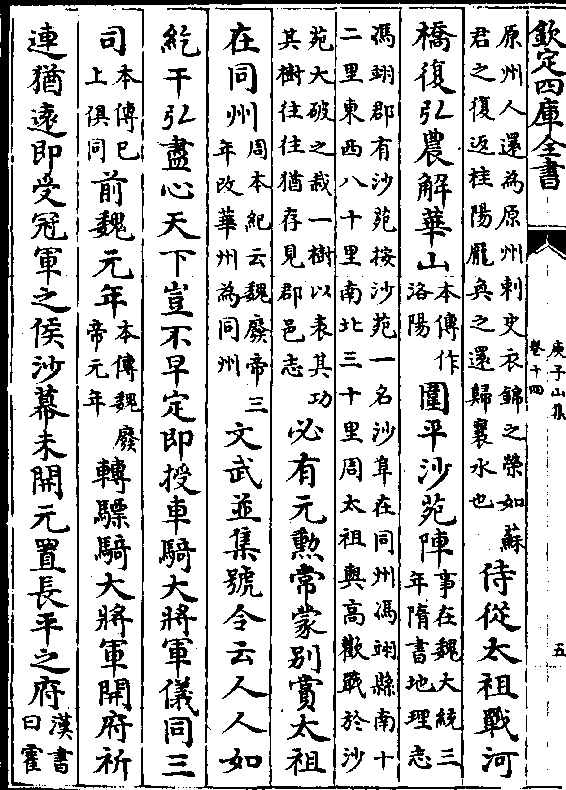 欽定四庫全書
庚子山集
卷十四
五
原州人還為原州刺史衣錦之榮如蘇
君之復返桂陽龎奐之還歸襄水也
侍從太祖戰河
橋復弘農解華山
本傳作
洛陽
圍平沙苑陣
事在魏大統三
年隋書地理志
馮翊郡有沙苑按沙苑一名沙阜在同州馮翊縣南十
二里東西八十里南北三十里周太祖與高歡戰於沙
苑大破之栽一樹以表其功
其樹往往猶存見郡邑志
必有元勲常蒙别賞太祖
在同州
周本紀云魏廢帝三
年改華州為同州
文武並集號令云人人如
紇干弘盡心天下豈不早定即授車騎大將軍儀同三
司
本傳巳
上俱同
前魏元年
本傳魏廢
帝元年
轉驃騎大將軍開府祈
連猶遠即受冠軍之侯沙幕未開元置長平之府
漢書
曰霍